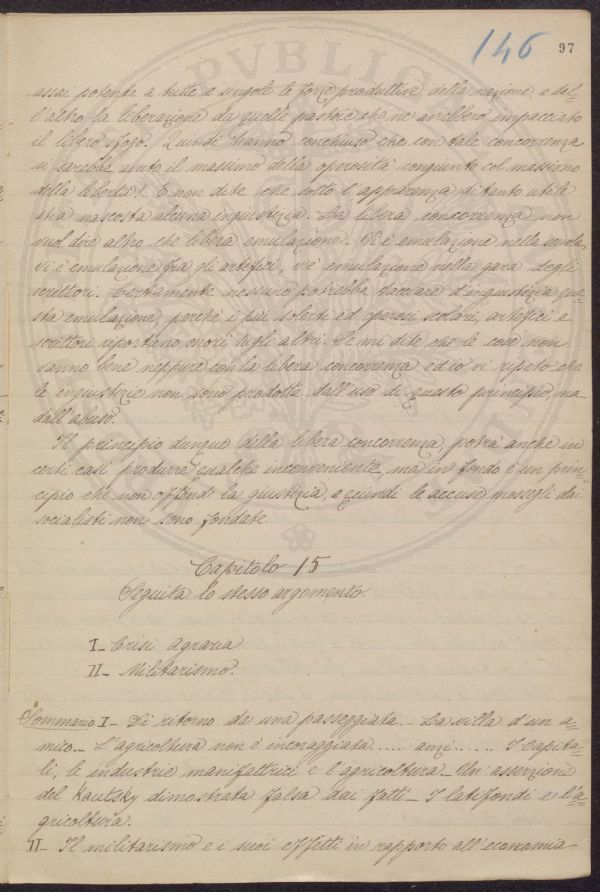 146 97
assai potente a tutte e singole le forze produttive della nazione e del-
l'altro la liberazione da quelle pastoie che ne avrebbero impacciato
il libero sfogo. Quindi hanno conchiuso che con tale concorrenza
si sarebbe avuto il massimo della operosità congiunto col massimo
della libertà! E non dite che sotto l'apparenza di tanto utile
stia nascosta alcuna ingiustizia. La libera concorrenza non
vuol dire altro che libera emulazione. Vi è emulazione nella scuola,
vi è emulazione fra gli artefici, v'è emulazione nella gara degli
scrittori. Certamente nessuno potrebbe tacciare d'ingiustizia que-
sta emulazione, perché i più solerti ed operosi scolari, artefici e
scrittori riportano onori sugli altri. Se mi dite che le cose non
vanno bene neppure con la libera concorrenza ed io vi ripeto che
le ingiustizie non sono prodotte dall'uso di questo principio, ma
dall'abuso.
Il principio dunque della libera concorrenza, potrà anche in
certi casi produrre qualche inconveniente, ma in fondo è un prin-
cipio che non offende la giustizia, e quindi le accuse mossegli dai
socialisti non sono fondate
Capitolo 15
Seguita lo stesso argomento.
I_ Crisi Agraria
II_ Militarismo.
Sommario I_ Di ritorno da una passeggiata_ La villa d'un a-
mico_ L'agricoltura non è incoraggiata...... anzi...... I capita-
li, le industrie manifattrici e l'agricoltura_ Un asserzione
del Kautsky dimostrata falsa dai fatti_ I latifondi e l'a-
gricoltura.
II_ Il militarismo e i suoi effetti in rapporto all'economia